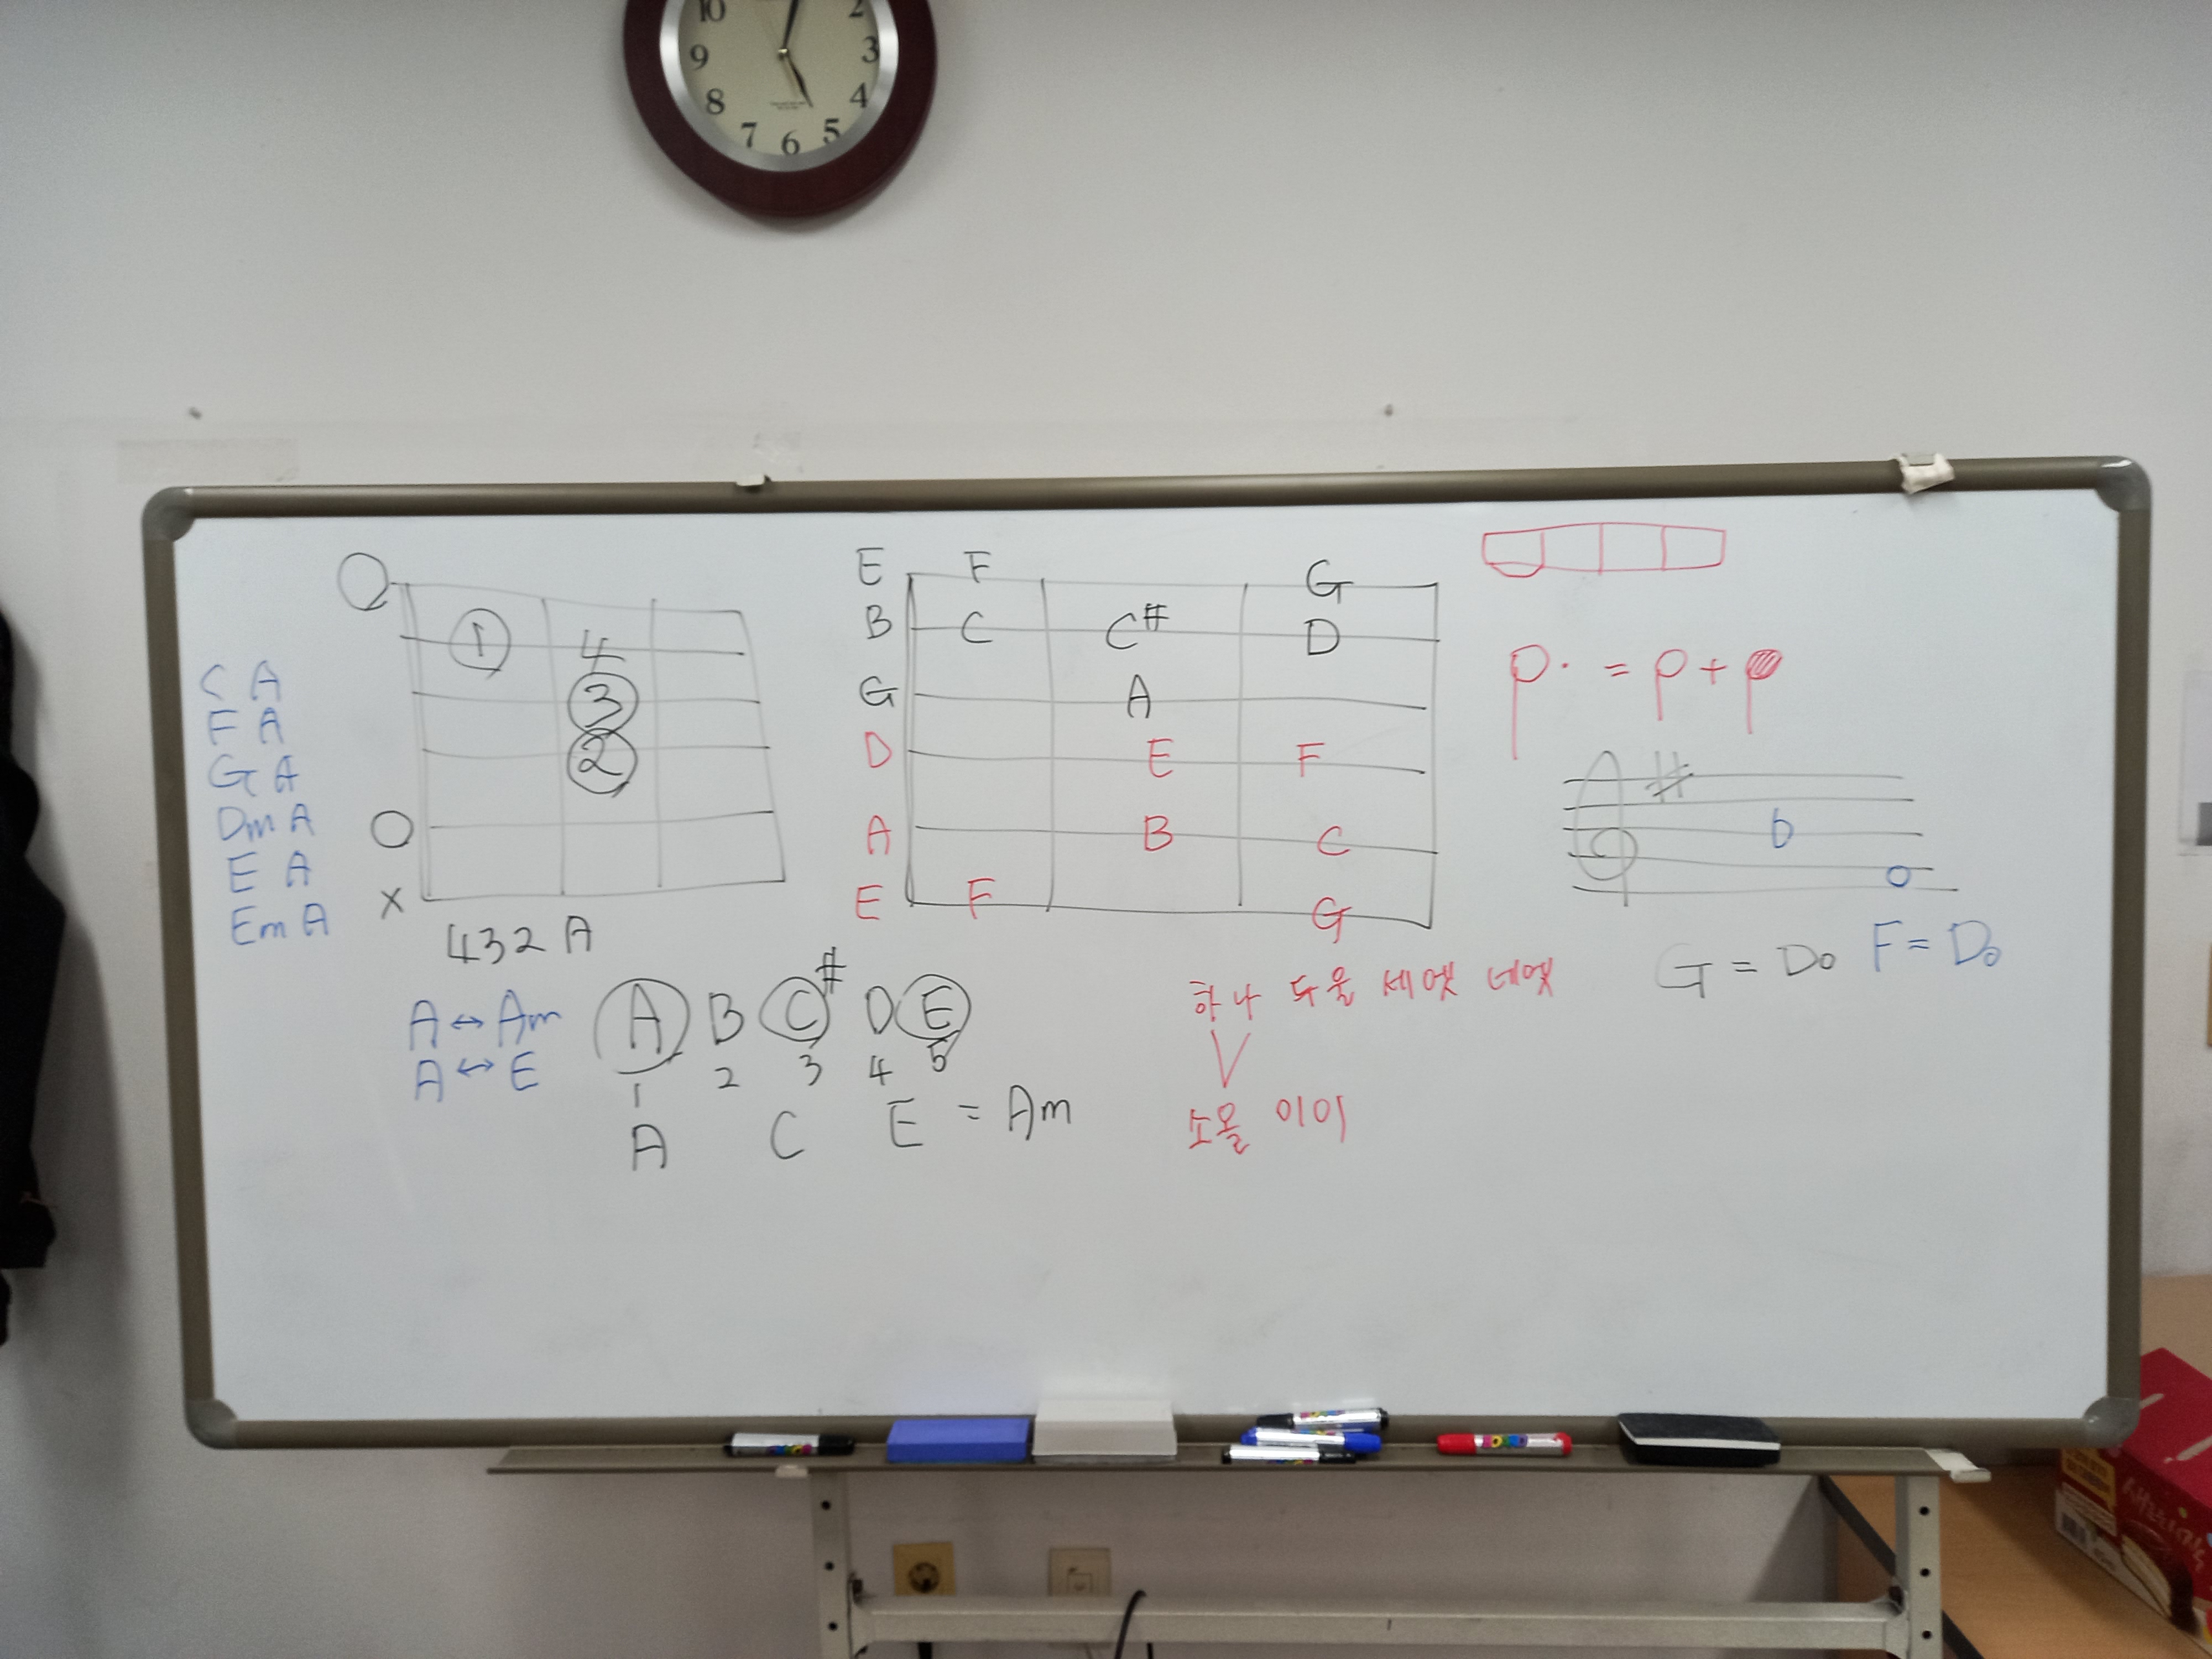 10 2
9 3
8 4
7 6 5
1 4
3
2
X
432 A
C A
F A
G A
Dm A
E A
Em A
A ↔ Am
A ↔ E
A B C# D E
1 2 3 4 5
A C E = Am
E F G
B C C# D
G A
D E F
A B C
E F G
하나 두울 세엣 네엣
V
소올 이이
. = +
#
b
G = Do F = Do